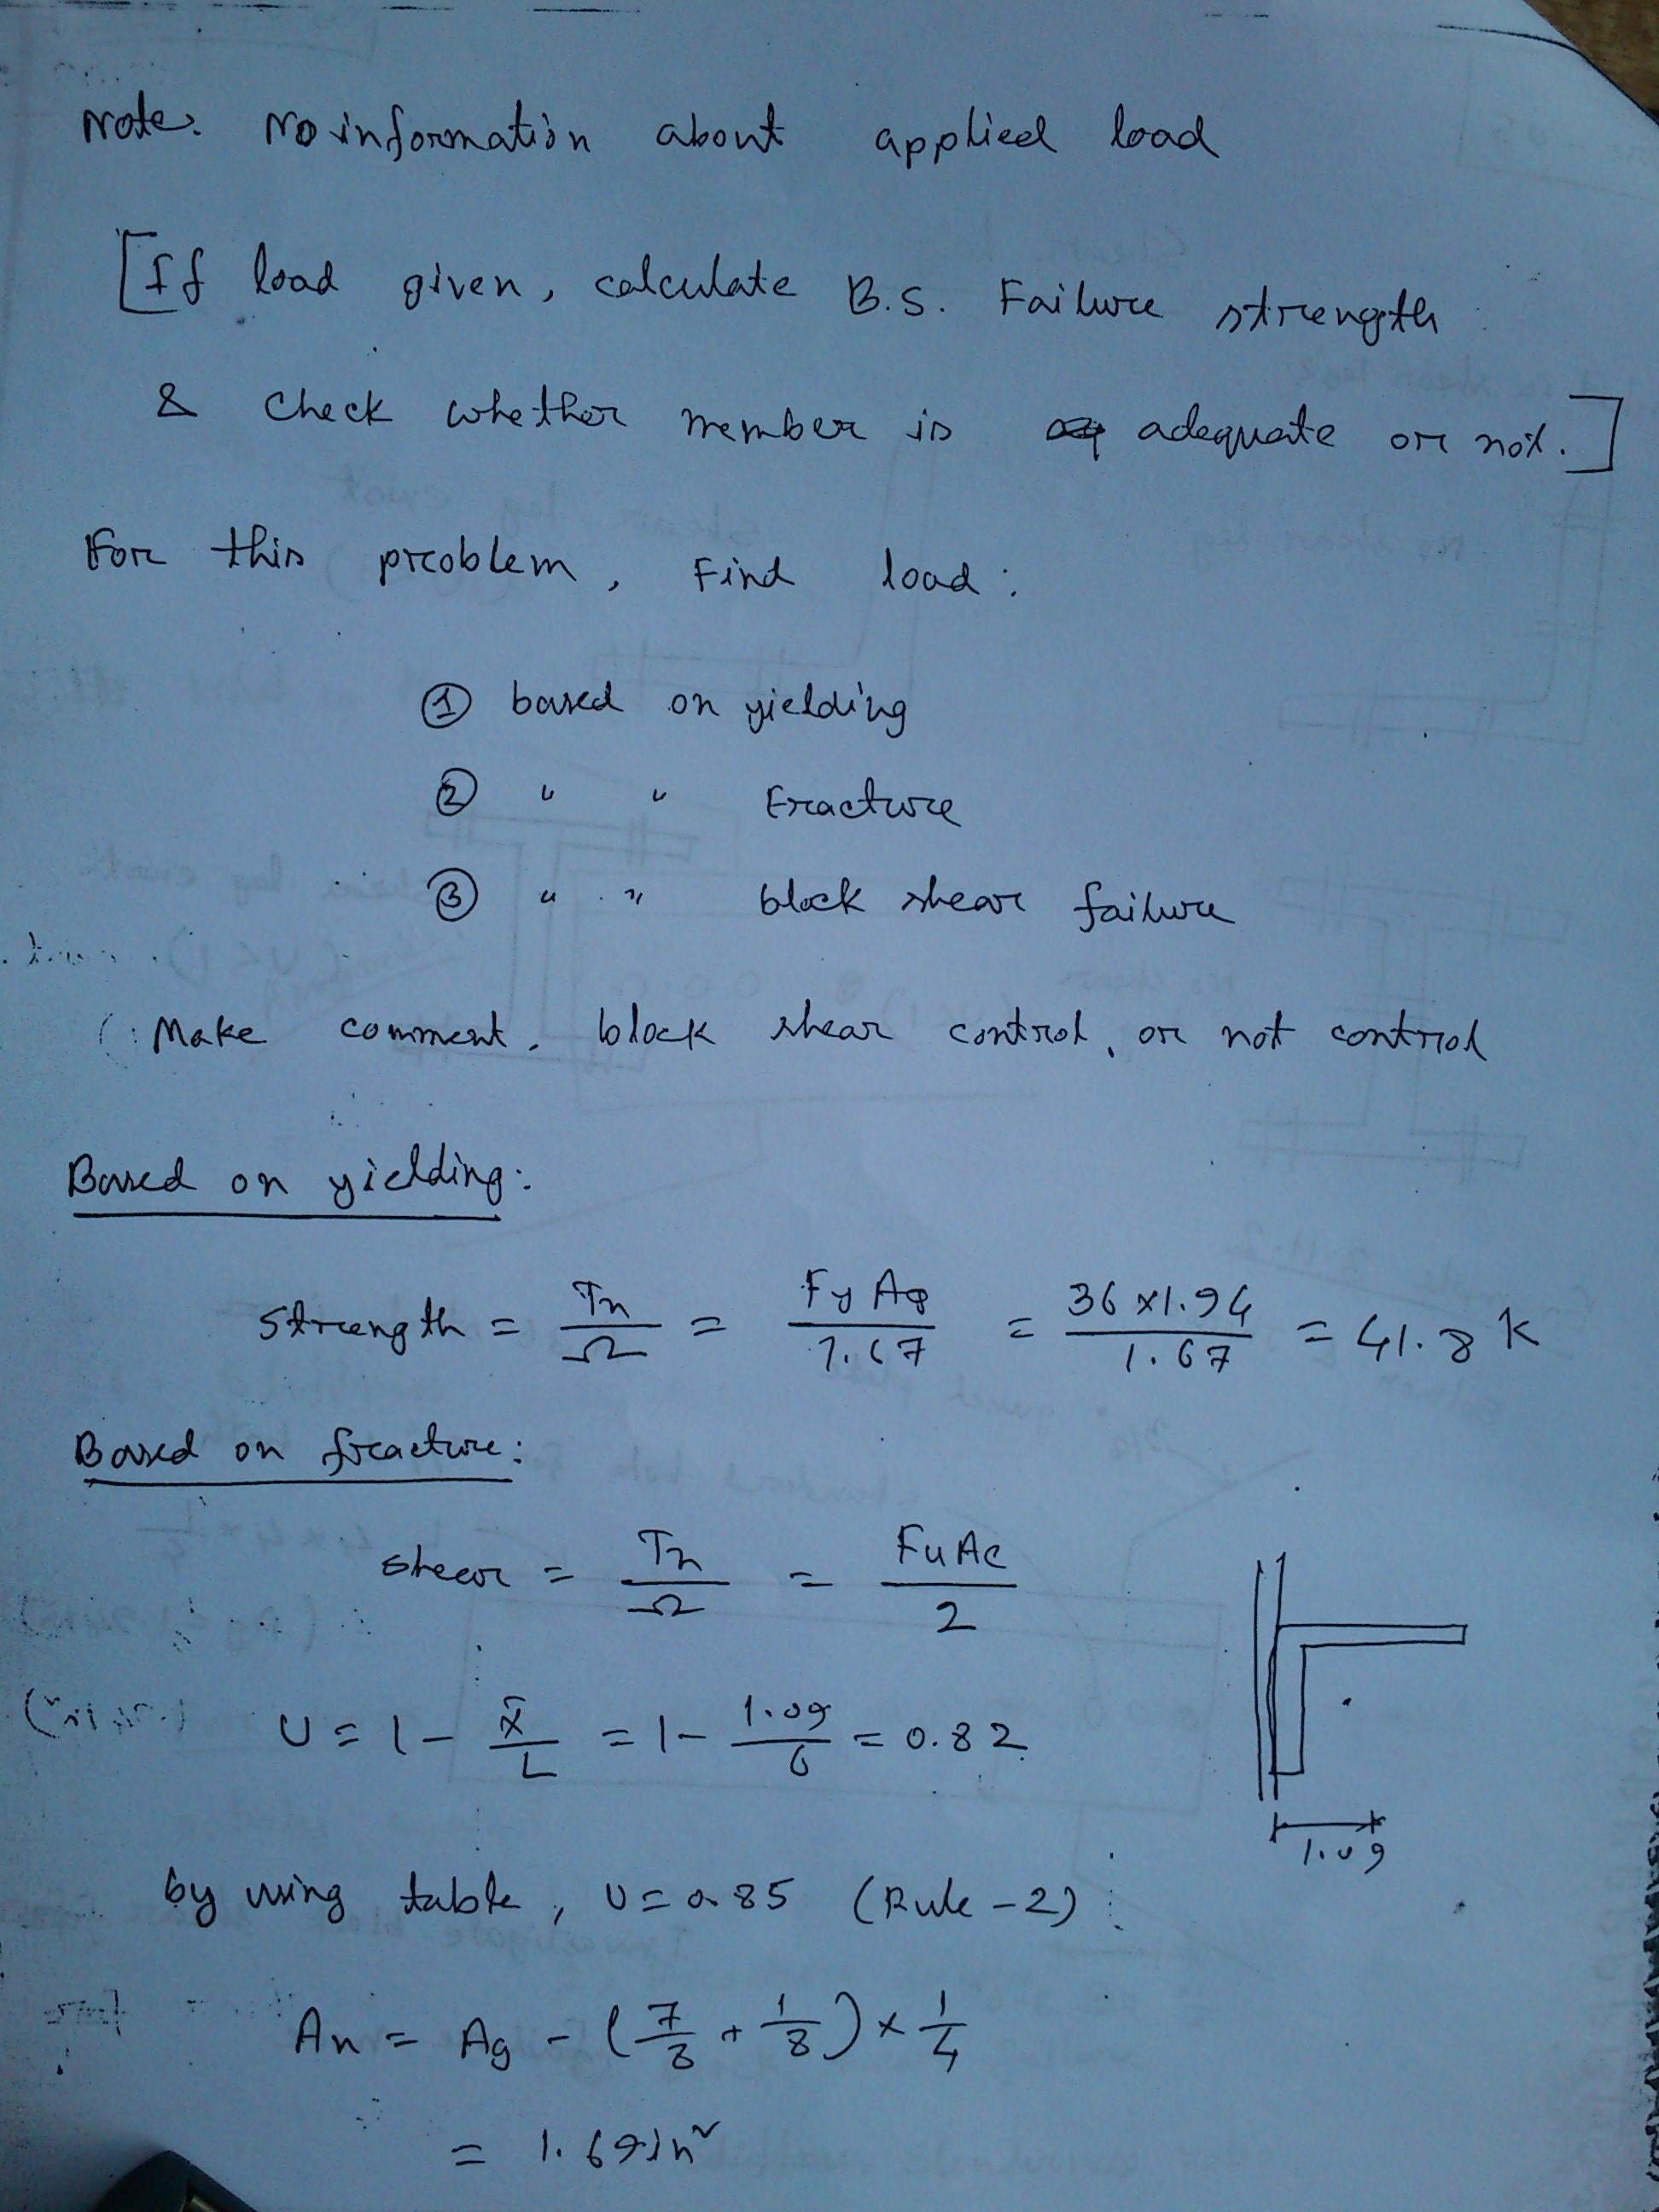 Note. No information about applied load
[If load given, calculate B.S. Failure strength
& check whether member is adequate or not.]
For this problem, Find load:
① based on yielding
② " " Fracture
③ " " block shear failure
Make comment. block shear control, or not control
Based on yielding:
Strength = Tn/Ω = Fy Ag/1.67 = 36 × 1.94/1.67 = 41.8 K
Based on fracture:
Shear = Tn/Ω = Fu Ae/2
U = 1 - x̄/L = 1 - 1.09/6 = 0.82
1.09
by using table, U = 0.85 (Rule - 2)
An = Ag - (7/8 + 1/8) × 1/4
= 1.69 in²